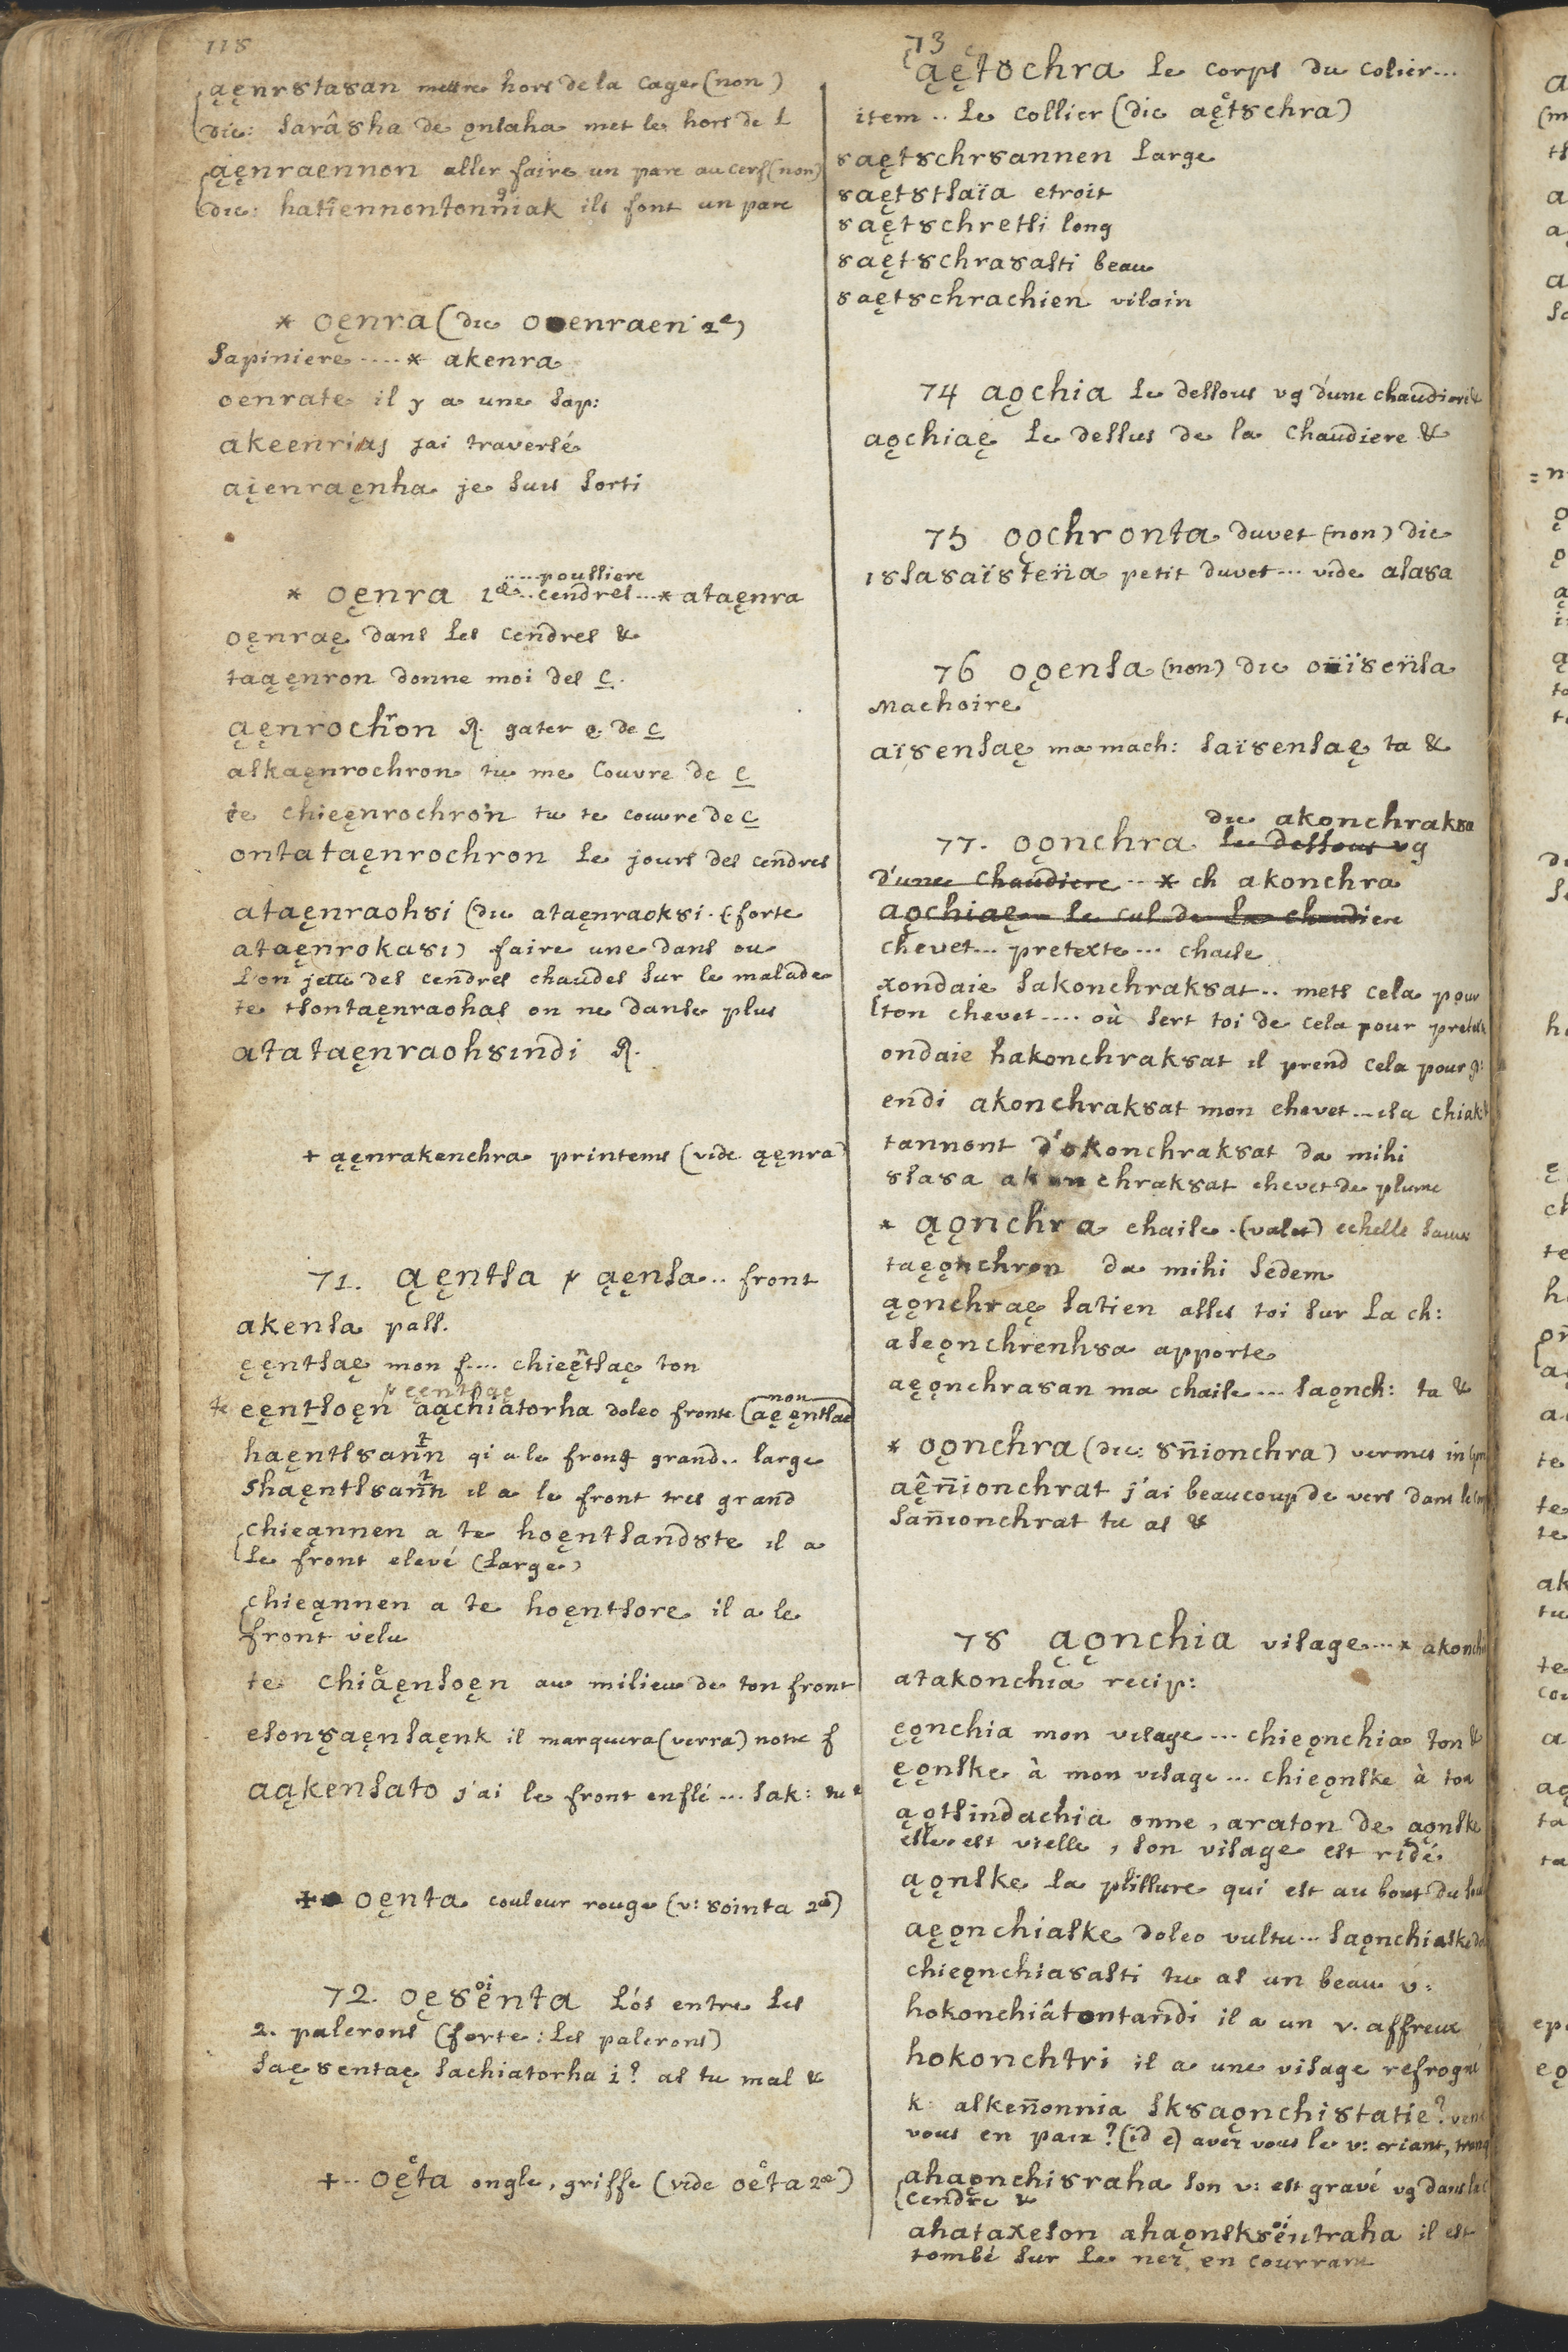 118
ąęnrȣtaȣan mettre hors de la cage (non)
dic: sarâȣha de ǫnlaha met le hors de L
ąęnraennon aller faire un parc au cerf (non)
dic: hatiennontonniak ils font un parc
* oęnra (dic oenraen 2ᵉ)
sapiniere .... * akenra
oenrate il y a une sap:
akeenrias jai traversé
aįenraęnha je suis sorti
.... poussiere
* oęnra 1ᵈᵉ .. cendres ... * ataęnra
oęnraę dans les cendres &
taąęnron donne moi des c.
ąęnrochron R. gater q. de c
askaęnrochron tu me couvre de c
te chieęnrochron tu te couvre de c
ontataęnrochron le jours des cendres
ataęnraohȣi (dic ataęnraokȣi . (forte
ataęnrokaȣi) faire une dans ou
l'on jette des cendres chaudes sur le malade
te tsontaęnraohas on ne danse plus
atataęnraohȣindi R.
+ ąęnrakenchra printems (vide ąęnra)
71. ąęntsa p ąęnsa .. front
akensa pass.
ęęntsaę mon f .... chieęntsaę ton
p ęęntsaę
te eęntsoęn aąchiatorha doleo fronte (non aęęntsaę
haęntsȣann qi a le front grand .. large
shaęntsȣann il a le front tres grand
chieąnnen a te hoęntsandȣte il a
le front elevé (large)
chieąnnen a te hoęntsore il a le
front velu
te chiaęnsoęn au milieu de ton front
esonȣaęnsaęnk il marquera (verra) notre f
aąkensato j'ai le front enflé ... sak: tu
+ oęnta couleur rouge (v: ȣointa 2ᵃ)
72. oęȣoienta l'os entre les
2. palerons (forte: les palerons)
saęȣentaę sachiatorha i? as tu mal &
+ .. oęta ongle, griffe (vide oęta 2ᵃ)
73
ąętȣchra le corps du colier ...
item .. le collier (dic aętȣchra)
ȣaętȣchrȣannen large
ȣaętȣtsaïa etroit
ȣaętȣchretsi long
ȣaętȣchraȣasti beau
ȣaętȣchrachien vilain
74 aǫchia le dessous vg d'une chaudiere &
aǫchiaę le dessus de la chaudiere &
75 oǫchronta duvet (non) dic
ȣsaȣaïȣtena petit duvet ... vide asaȣa
76 oǫensa (non) dic oïȣensa
Machoire
aïȣensaę ma mach: saïȣensaę ta &
dic akonchrakȣa
77. oǫnchra le dessous vg
d'une chaudiere .. * ch akonchra
aǫchiaę le cul de la chaudiere
chevet ... pretexte ... chaise
xondaie sakonchrakȣat .. mets cela pour
ton chevet .... où sert toi de cela pour pretexte
ondaie hakonchrakȣat il prend cela pour p:
endi akonchrakȣat mon chevet ... isa chiak
tannont d'okonchrakȣat da mihi
ȣsaȣa akonchrakȣat chevet de plume
* ąǫnchra chaise . (valet) echelle
taęǫnchron da mihi sedem
ąǫnchraę satien assis toi sur la ch:
aseǫnchrenhȣa apporte
aęǫnchraȣan ma chaise ... saǫnch: ta &
* oǫnchra (dic: ȣnnionchra) vermes in
aęnnionchrat j'ai beaucoup de vers dans le
sannionchrat tu as &
78 ąǫnchia visage .... * akonch
atakonchia recip:
ęǫnchia mon visage ... chieǫnchia ton &
ęǫnske à mon visage ... chieǫnske à ton
ąǫtsindachia onne, araton de aǫnske
elle est vielle, son visage est ridé
ąǫnske la plissure qui est au bout du
aęǫnchiaske doleo vultu ... saǫnchiaske
chieǫnchiaȣasti tu as un beau v:
hokonchiâtontandi il a un v. affreux
hokonchtri il a une visage refrogné
k. askennonnia skȣaǫnchiȣtatie?
vous en paix? (id e) avez vous le v: criant,
ahaǫnchiȣraha son v: est gravé vg dans la
cendre &
ahataxeson ahaǫnskȣoientraha il est
tombé sur le nez en courrant